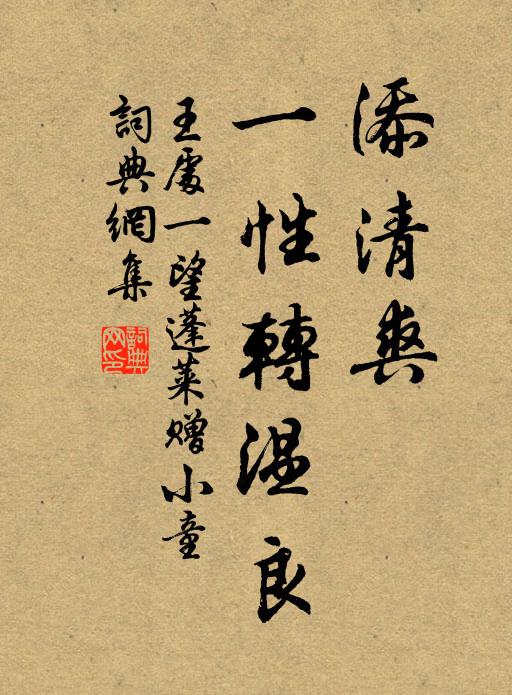 添清爽
一性轉温良
王處一望蓬萊贈小童
詞典網集
詞典网印